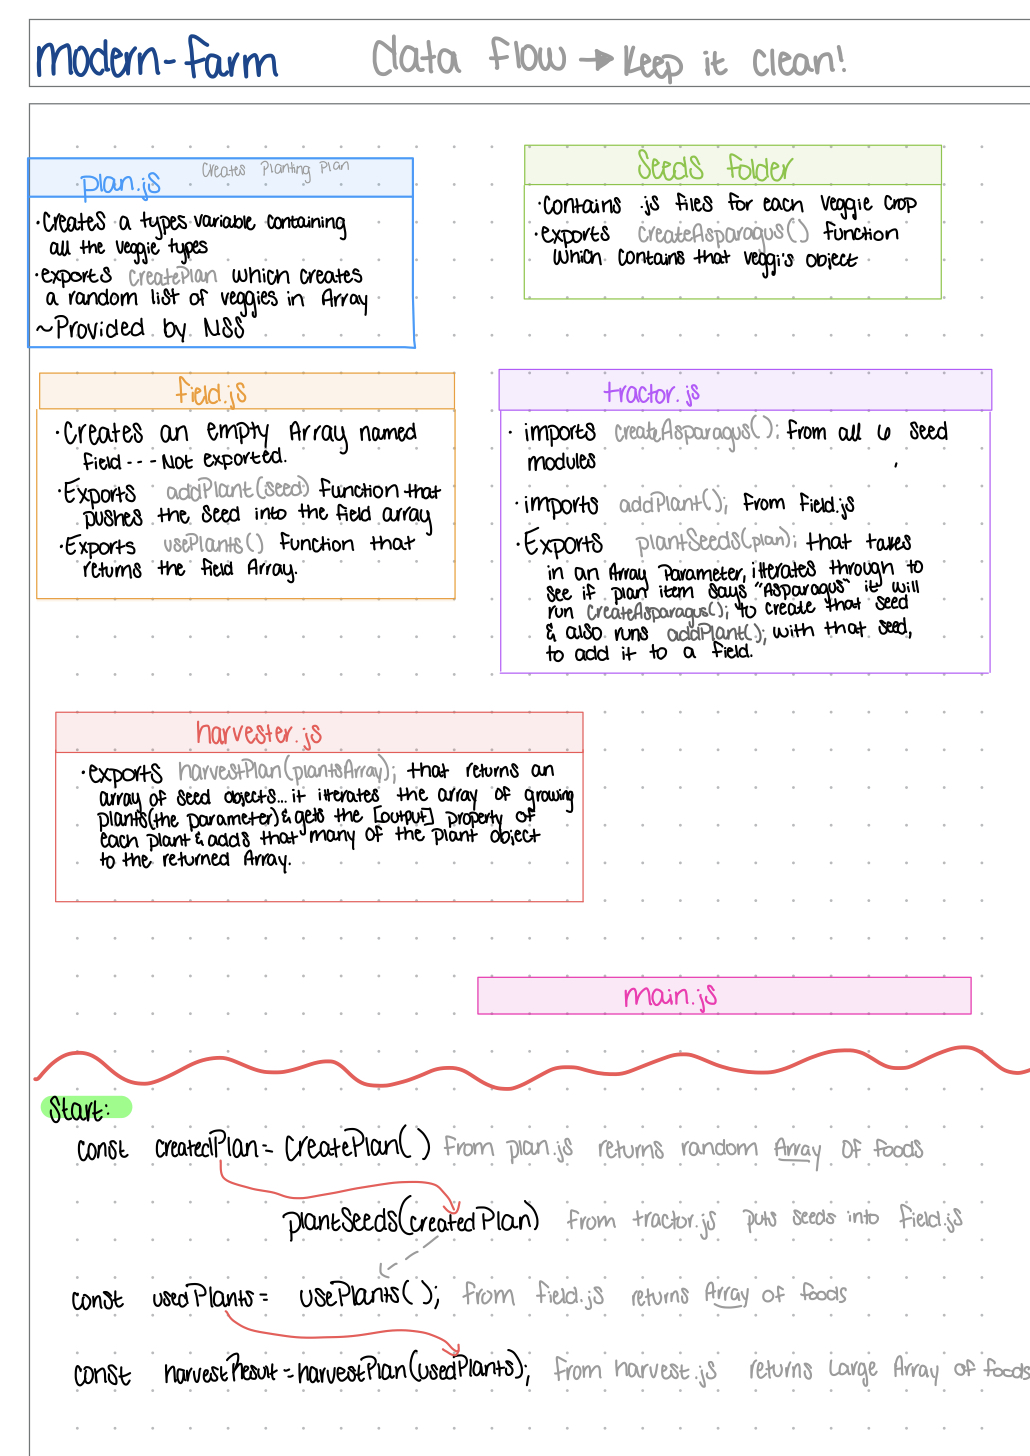 modern-farm data flow → Keep it clean!
plan.js Creates Planting Plan
·Creates a types variable containing
all the veggie types
·exports createPlan which creates
a random list of veggies in Array
~Provided by NSS
Seeds folder
·Contains .js files for each Veggie Crop
·exports createAsparagus() function
which contains that veggi's object
field.js
·Creates an empty Array named
field---Not exported.
·Exports addPlant(seed) function that
pushes the seed into the field array
·Exports usePlants() function that
returns the field Array.
tractor.js
· imports createAsparagus(); from all 6 seed
modules
·imports addPlant(); from field.js
·Exports plantSeeds(plan); that takes
in an Array Parameter, itterates through to
see if plan item says "Asparagus" it will
run createAsparagus(); to create that seed
& also runs addPlant(); with that seed,
to add it to a field.
harvester.js
·exports harvestPlan(plantsArray); that returns an
array of seed objects...it itterates the array of growing
plants(the parameter) & gets the [output] property of
each plant & adds that many of the plant object
to the returned Array.
main.js
Start:
const createdPlan = createPlan() from plan.js returns random Array of foods
plantSeeds(createdPlan) from tractor.js puts seeds into field.js
const usedPlants = usePlants(); from field.js returns Array of foods
const harvestResult = harvestPlan(usedPlants); from harvest.js returns Large Array of foods